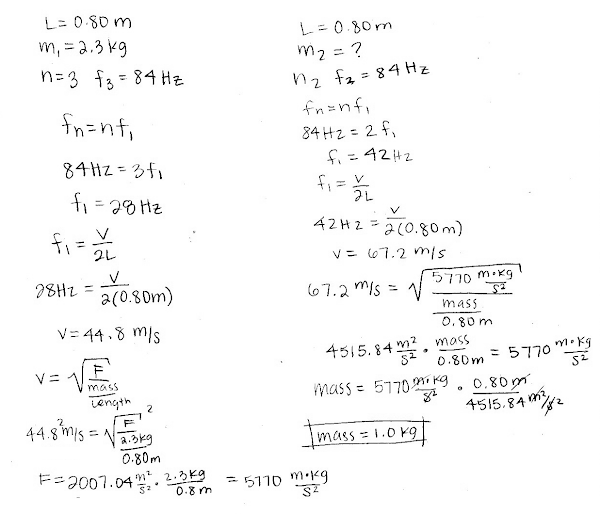 L = 0.80 m
m₁ = 2.3 kg
n=3 f₃ = 84 Hz
fn = nf₁
84 Hz = 3f₁
f₁ = 28 Hz
f₁ = V/2L
28Hz = V/2(0.80m)
V = 44.8 m/s
V = √(F/(mass/length))
44.8² m/s = √(F/(2.3kg/0.80m))²
F = 2007.04 m²/s² · 2.3kg/0.8m = 5770 m·kg/s²
L = 0.80 m
m₂ = ?
n₂ f₂ = 84 Hz
fn = nf₁
84 Hz = 2 f₁
f₁ = 42 Hz
f₁ = V/2L
42 Hz = V/2(0.80m)
V = 67.2 m/s
67.2 m/s = √(5770 m·kg/s²/(mass/0.80 m))
4515.84 m²/s² · mass/0.80m = 5770 m·kg/s²
mass = 5770 m·kg/s² · 0.80 m/4515.84 m²/s²
mass = 1.0 kg